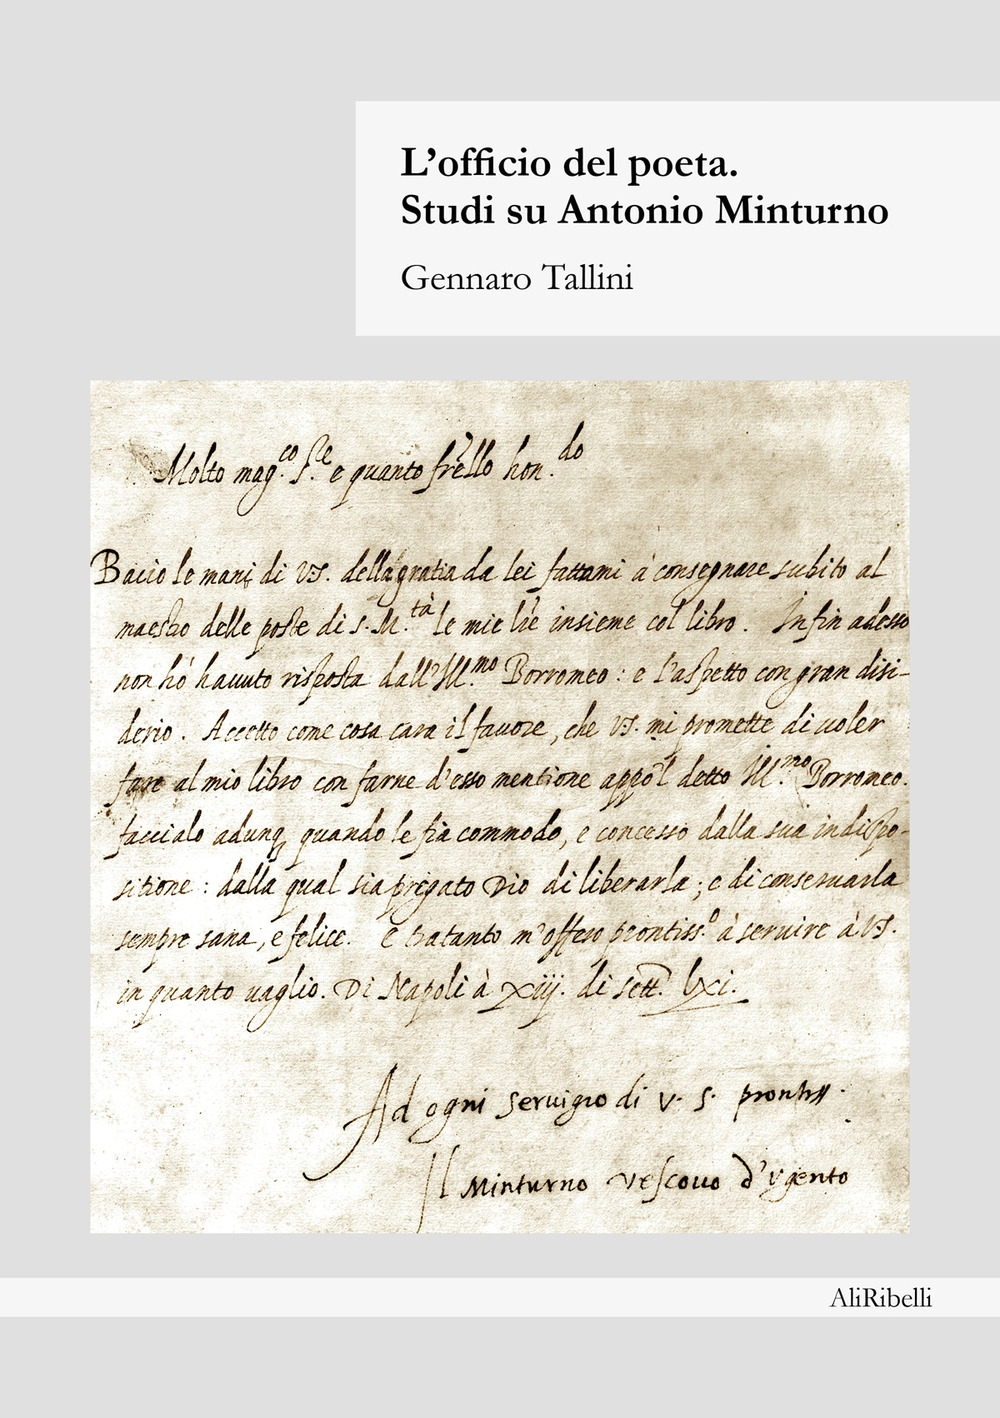 L'officio del poeta.
Studi su Antonio Minturno
Gennaro Tallini
Molto mag.co S.re e quanto fr̃ello hon.do
Bacio le mani di VS. della gratia da lei fattami à consegnare subito al
maestro delle poste di S.M.tà le mie lr̃e insieme col libro. Infin adesso
non hò hauuto risposta dall'Ill.mo Borromeo: e l'aspetto con gran disi-
derio. Accetto come cosa cara il fauore, che VS. mi promette di uoler
fare al mio libro con farne d'esso mentione appo'l detto Ill.mo Borromeo.
faccialo adunq, quando le fia commodo, e concesso dalla sua indispo-
sitione: dalla qual sia pregato Dio di liberarla; e di conseruarla
sempre sana, e felice. e tratanto m'offero prontiss.o à seruire à VS.
in quanto uaglio. Di Napoli à xiij. di sett. lxi.
Ad ogni seruigio di V. S. prontiss.
Il Minturno Vescouo d'Vgento
AliRibelli